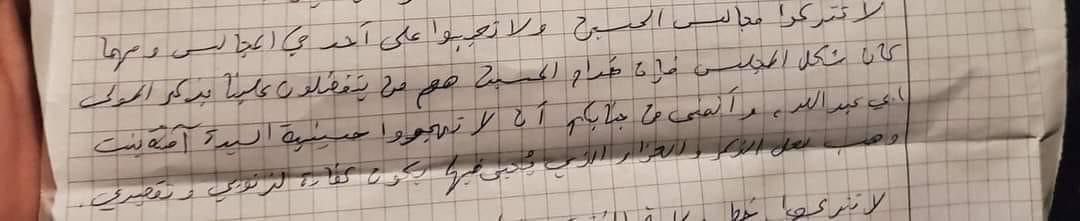 لا تتركوا مجالس الحسين ولا تعيبوا على أحد في المجالس ومهما
كان شكل المجلس فإن خدام الحسين هم من يتفضلون علينا بذكر المولى
ابي عبدالله، وأتمنى من جنابكم أن لا تهجروا حسينية السيدة آمنة بنت
وهب لعل الذكر والعزاء الذي يُحيى فيها يكون كفارة لذنوبي وتقصيري.
لا تتركوا